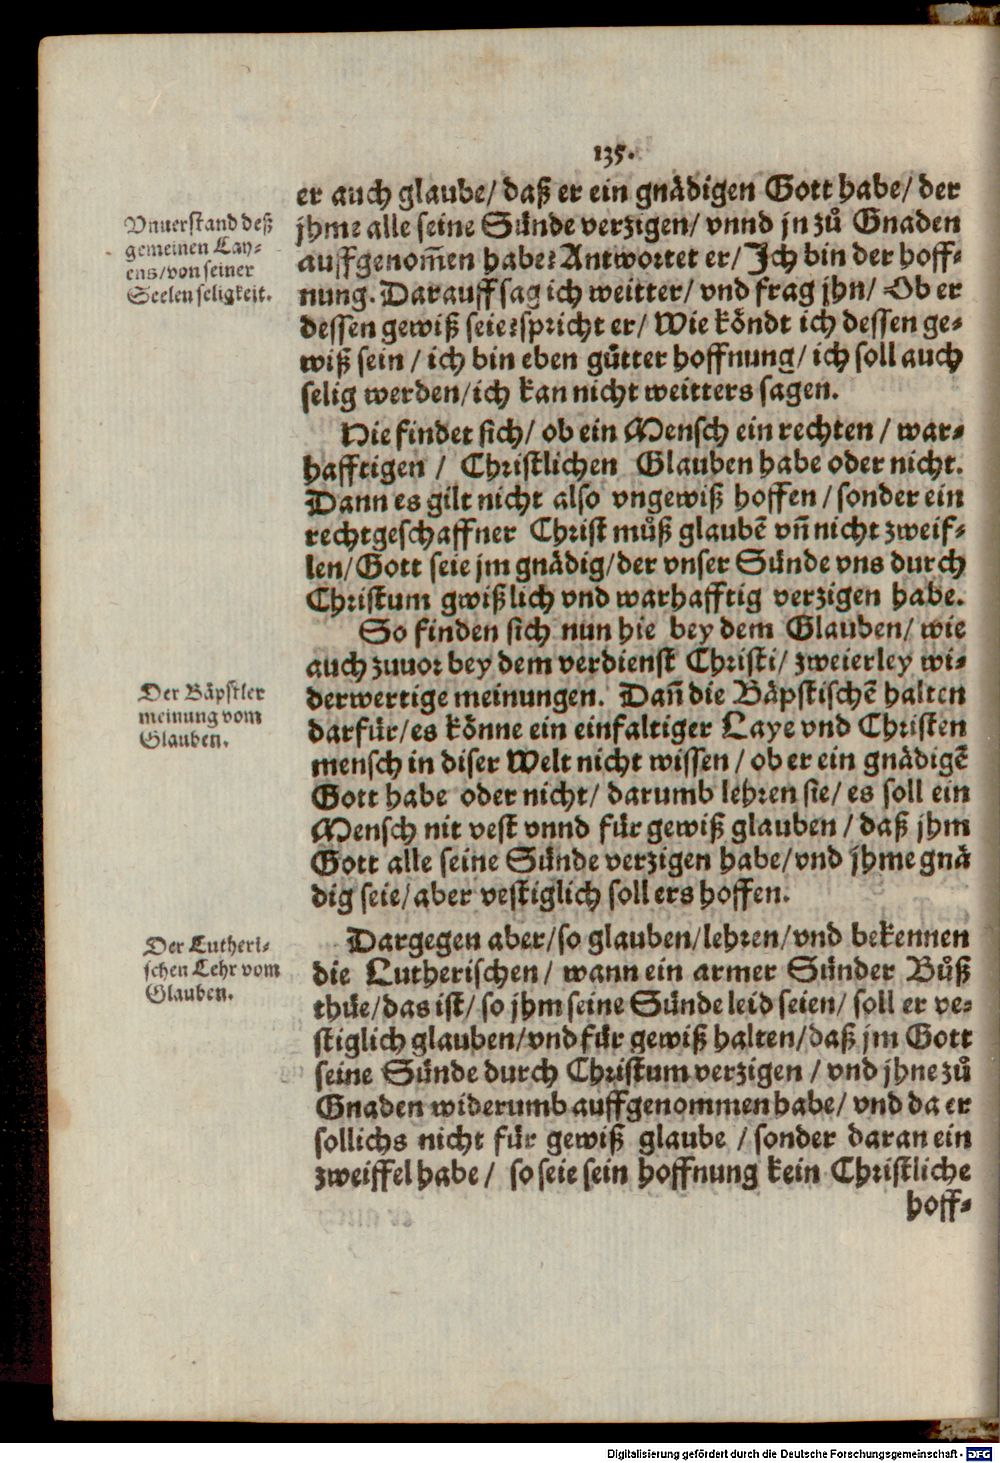 135.
er auch glaube/ daß er ein gnädigen Gott habe/ der
jhme alle seine Sünde verzigen/ vnnd jn zů Gnaden
auffgenom̃en habe? Antwortet er/ Ich bin der hoff-
nung. Darauff sag ich weitter/ vnd frag jhn/ Ob er
dessen gewiß seie? spricht er/ Wie köndt ich dessen ge-
wiß sein / ich bin eben gůtter hoffnung/ ich soll auch
selig werden/ ich kan nicht weitters sagen.
Vnuerstand deß
gemeinen Lay-
ens/ von seiner
Seelen seligkeit.
Hie findet sich/ ob ein Mensch ein rechten / war-
hafftigen / Christlichen Glauben habe oder nicht.
Dann es gilt nicht also vngewiß hoffen / sonder ein
rechtgeschaffner Christ můß glaubẽ vñ nicht zweif-
len/ Gott seie jm gnädig/ der vnser Sünde vns durch
Christum gwißlich vnd warhafftig verzigen habe.
So finden sich nun hie bey dem Glauben/ wie
auch zuuor bey dem verdienst Christi/ zweierley wi-
derwertige meinungen. Dañ die Bäpstischẽ halten
darfür/ es könne ein einfaltiger Laye vnd Christen
mensch in diser Welt nicht wissen / ob er ein gnädigẽ
Gott habe oder nicht/ darumb lehren sie/ es soll ein
Mensch nit vest vnnd für gewiß glauben / daß jhm
Gott alle seine Sünde verzigen habe/ vnd jhme gnä
dig seie/ aber vestiglich soll ers hoffen.
Der Bäpstler
meinung vom
Glauben.
Dargegen aber/ so glauben/ lehren/ vnd bekennen
die Lutherischen/ wann ein armer Sünder Bůß
thüe/ das ist/ so jhm seine Sünde leid seien/ soll er ve-
stiglich glauben/ vnd für gewiß halten/ daß jm Gott
seine Sünde durch Christum verzigen / vnd jhne zů
Gnaden widerumb auffgenommen habe/ vnd da er
sollichs nicht für gewiß glaube / sonder daran ein
zweiffel habe / so seie sein hoffnung kein Christliche
hoff-
Der Lutheri-
schen Lehr vom
Glauben.
Digitalisierung gefördert durch die Deutsche Forschungsgemeinschaft - DFG